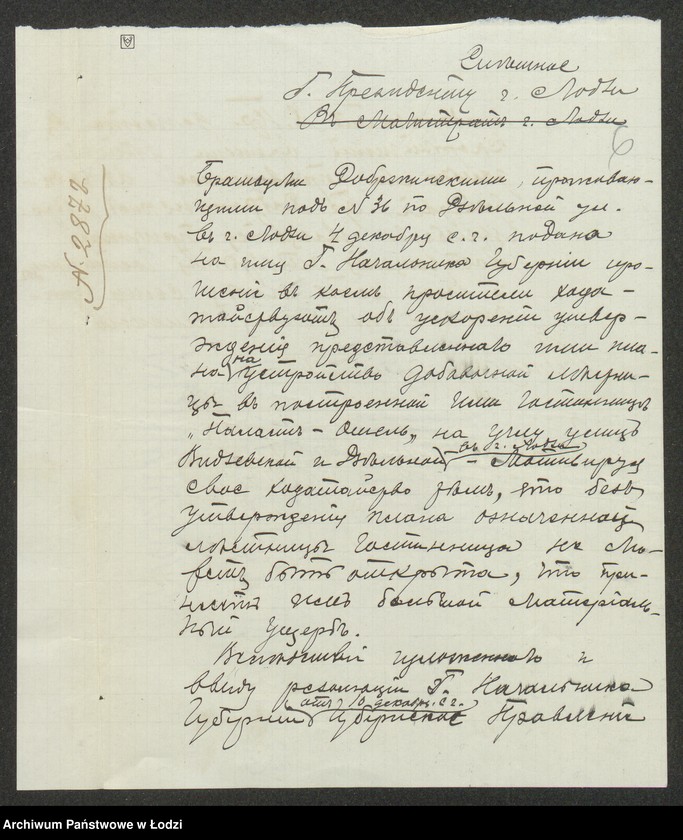 Спѣшное
Г. Президенту г. Лодзи
Въ Магистратъ г. Лодзи
6
N. 2872
Братьями Добржинскими, прожива-
ющими подъ N 36 по Дзѣльной ул.
въ г. Лодзи 4 декабря с. г. подана
на имя Г. Начальника Губерніи про-
шеніе въ коемъ просители хода-
тайствуютъ объ ускореніи утвер-
жденія представленнаго ими пла-
на на устройство добавочной лѣстни-
цы въ построенной ими гостинницѣ
„Паластъ-Отель„ на углу улицъ
Видзевской и Дзѣльной въ г. Лодзи - Мотивируя
свое ходатайство тѣмъ, что безъ
утвержденія плана означенной
лѣстницы гостинница не мо-
жетъ быть открыта, что при-
носитъ имъ большой матеріаль-
ный ущербъ.
Вслѣдствіе изложеннаго и
ввиду резолюціи Г. Начальника
Губерніи отъ 10 декабря с. г. Губернское Правленіе
Archiwum Państwowe w Łodzi